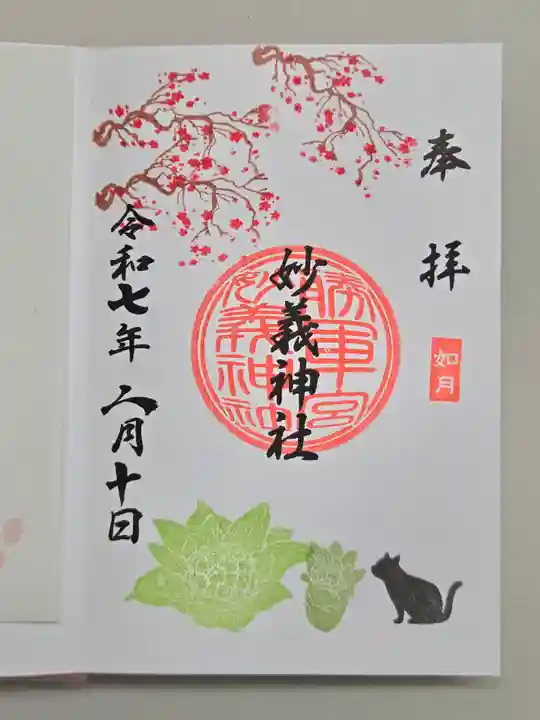 奉拝
如月
妙義神社
勝軍宮
妙義神社
令和七年二月十日